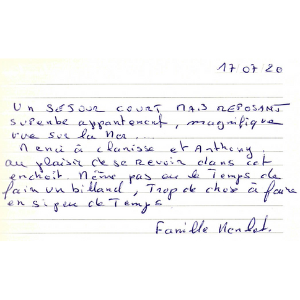 17 07 20
UN SEJOUR COURT MAIS REPOSANT
superbe appartement, magnifique
vue sur la Mer...
Merci à Clarisse et Anthony
au plaisir de se revoir dans cet
endroit. Même pas eu le Temps de
faire un billard, Trop de chose à faire
en si peu de Temps.
Famille